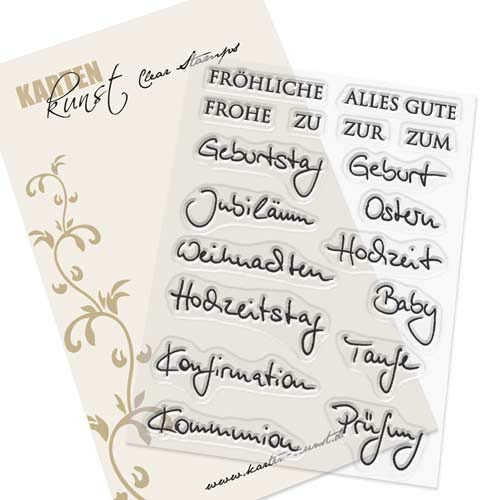 KARTEN
kunst Clear Stamps
FRÖHLICHE ALLES GUTE
FROHE ZU ZUR ZUM
Geburtstag Geburt
Jubiläum Ostern
Weihnachten Hochzeit
Hochzeitstag Baby
Konfirmation Taufe
Kommunion Prüfung
www.karten-kunst.de